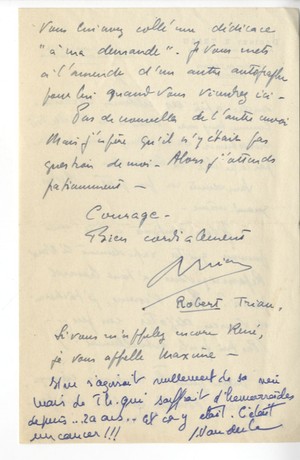 Vous lui avez collé une dédicace
"à ma demande". Je vous mets
à l'amende d'un autre autographe
pour lui quand vous viendrez ici -
Pas de nouvelles de l'autre
Mais j'espère qu'il n'y était pas
question de moi - Alors j'attends
patiemment -
Courage -
Bien cordialement
Robert Trian,
Si vous m'appelez encore René,
je vous appelle Maxime -
s'agissait nullement de
mais de qui souffrait d'hémorroïdes
depuis ... 20 ans .. et C'était
un cancer !!!